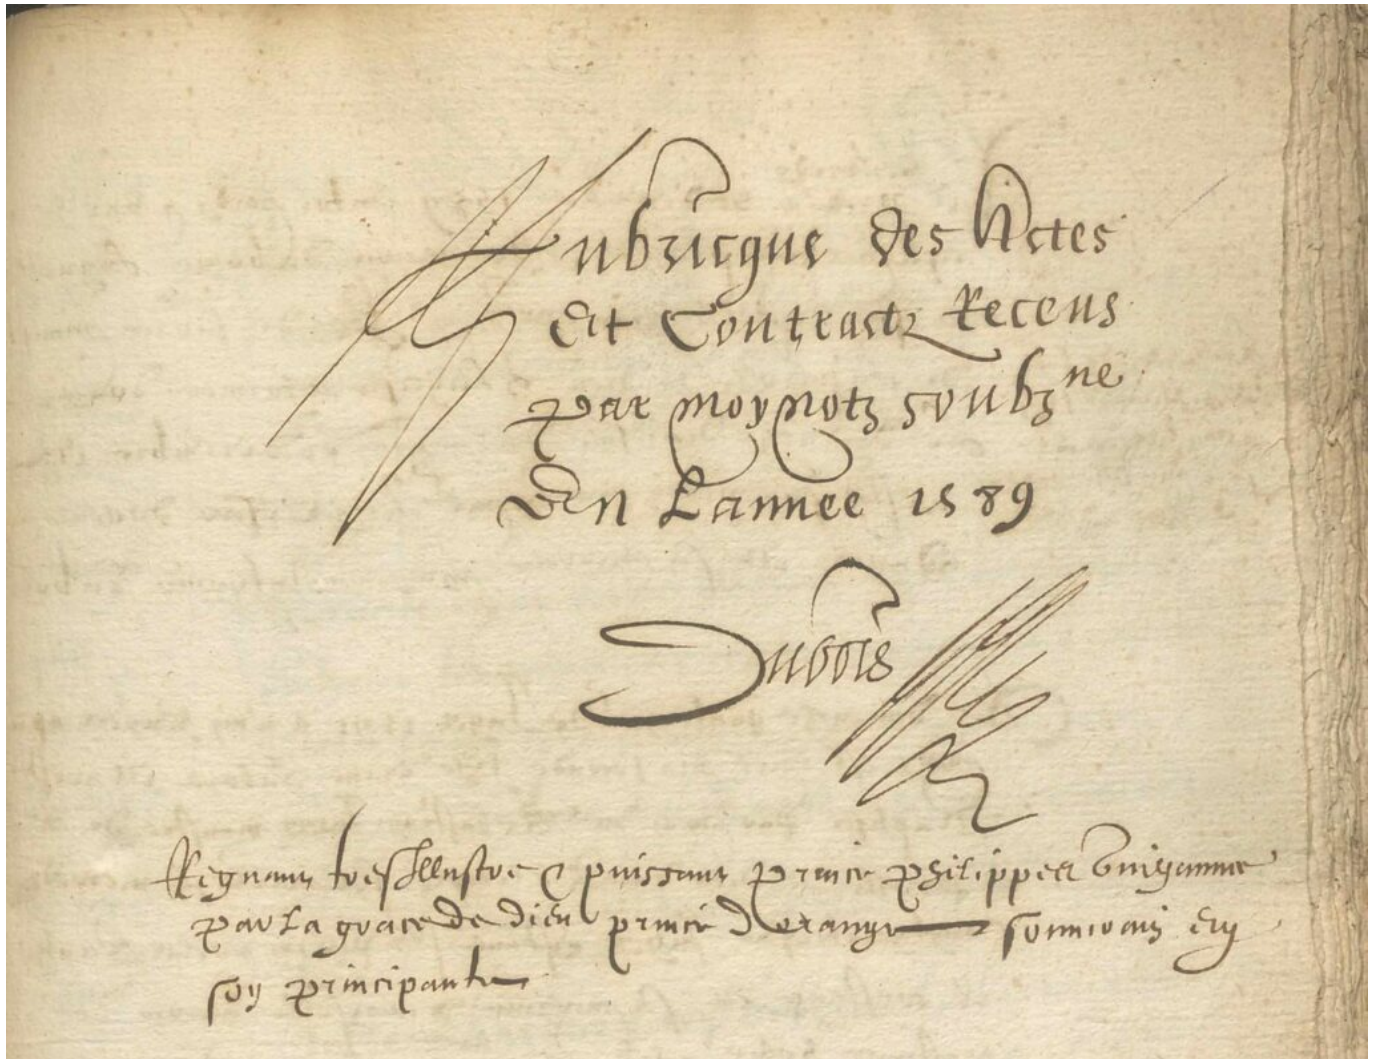 Rubricque des Actes
Et Contractz Receus
par moy notz soubz ne
En Lannee 1589
Dubois
Regnant tresIllustre & puissant prince philippes Guigaume
par La grace de dieu prince derange souverain en
soy principaute